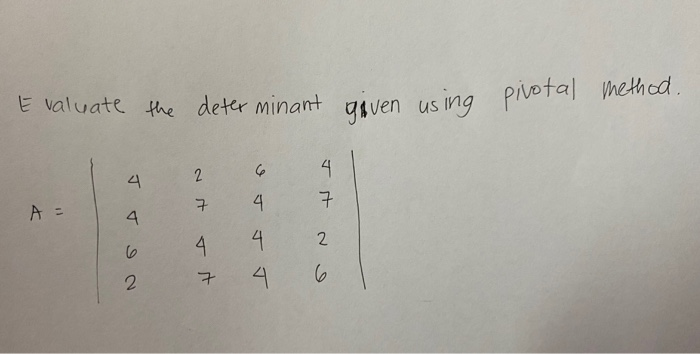 Evaluate the determinant given using pivotal method.
4 2 6 4
A = 4 7 4 7
6 4 4 2
2 7 4 6